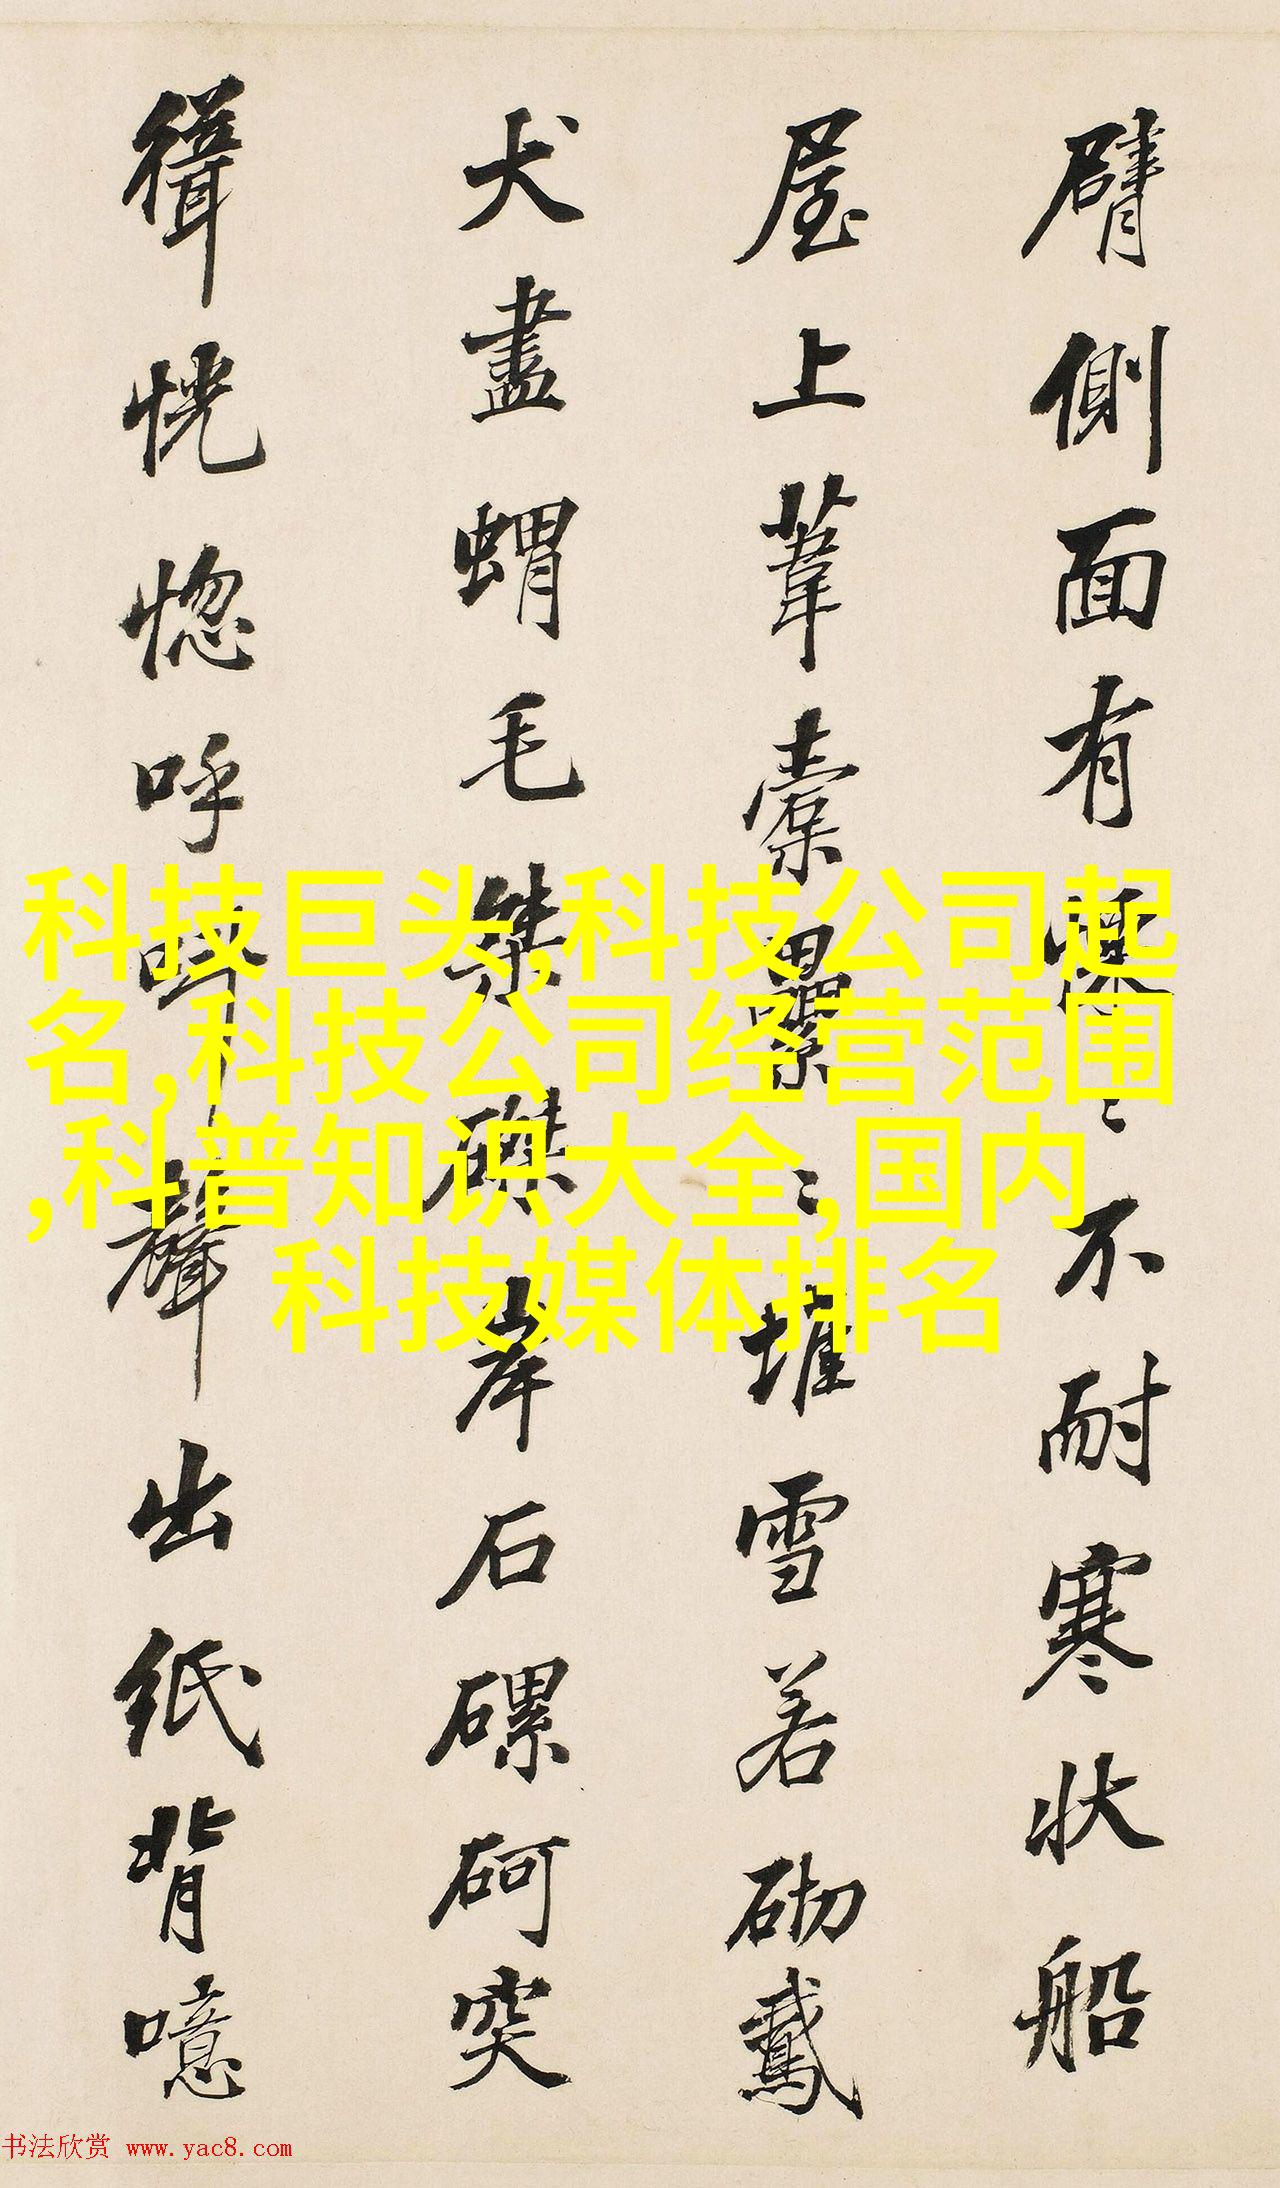 臂側面有懍〻不耐寒状船
屋上葦橐纍〻堆雪若砌鵞
犬盡蝟毛桀磔岸石磥砢突
恍惚呼聲出紙背噫
科技巨头,科技公司起
名,科技公司经营范围
,科普知识大全,国内
科技媒体排名
书法欣赏 www.yac8.com